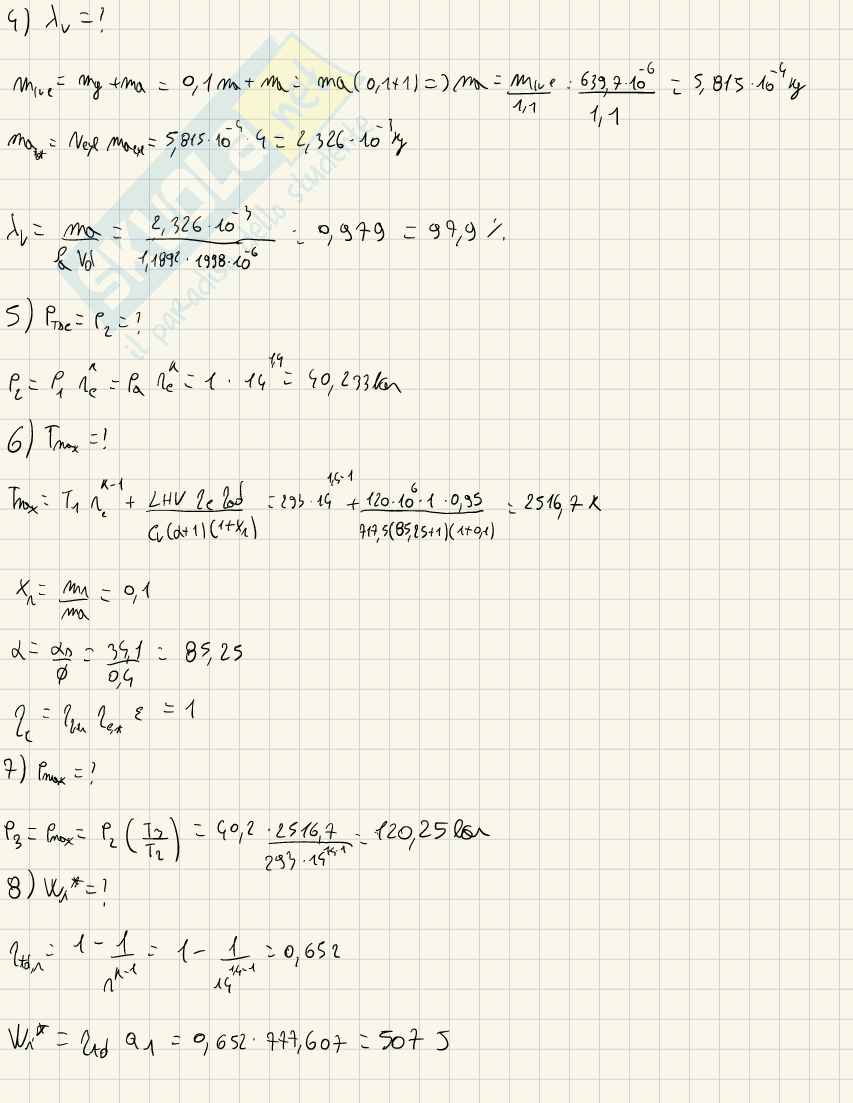 4) λv = ?
m_IVC = mg + ma = 0,1 ma + ma = ma (0,1+1) => ma = m_IVC / 1,1 = 639,7·10^-6 / 1,1 = 5,815·10^-4 kg
ma_tot = Ncyl ma_cyl = 5,815·10^-4 · 4 = 2,326·10^-3 kg
λv = ma / (ρa Vd) = 2,326·10^-3 / (1,1892 · 1998·10^-6) = 0,979 = 97,9 %.
5) P_TDC = P2 = ?
P2 = P1 rc^k = Pa rc^k = 1 · 14^1,4 = 40,233 bar
6) Tmax = ?
Tmax = T1 rc^(k-1) + LHV ηc ηad / (cv (α+1)(1+xr)) = 293·14^(1,4-1) + 120·10^6·1·0,95 / (717,5(85,25+1)(1+0,1)) = 2516,7 K
xr = mr / ma = 0,1
α = αs / φ = 34,1 / 0,4 = 85,25
ηc = = 1
7) Pmax = ?
P3 = Pmax = P2 (T3 / T2) = 40,2 · 2516,7 / (293·14^(1,4-1)) = 120,25 bar
8) Wi* = ?
ηtd,r = 1 - 1 / r^(k-1) = 1 - 1 / 14^(1,4-1) = 0,652
Wi* = ηtd Q1 = 0,652 · 777,607 = 507 J
SKUOLA.net
il paradiso dello studente